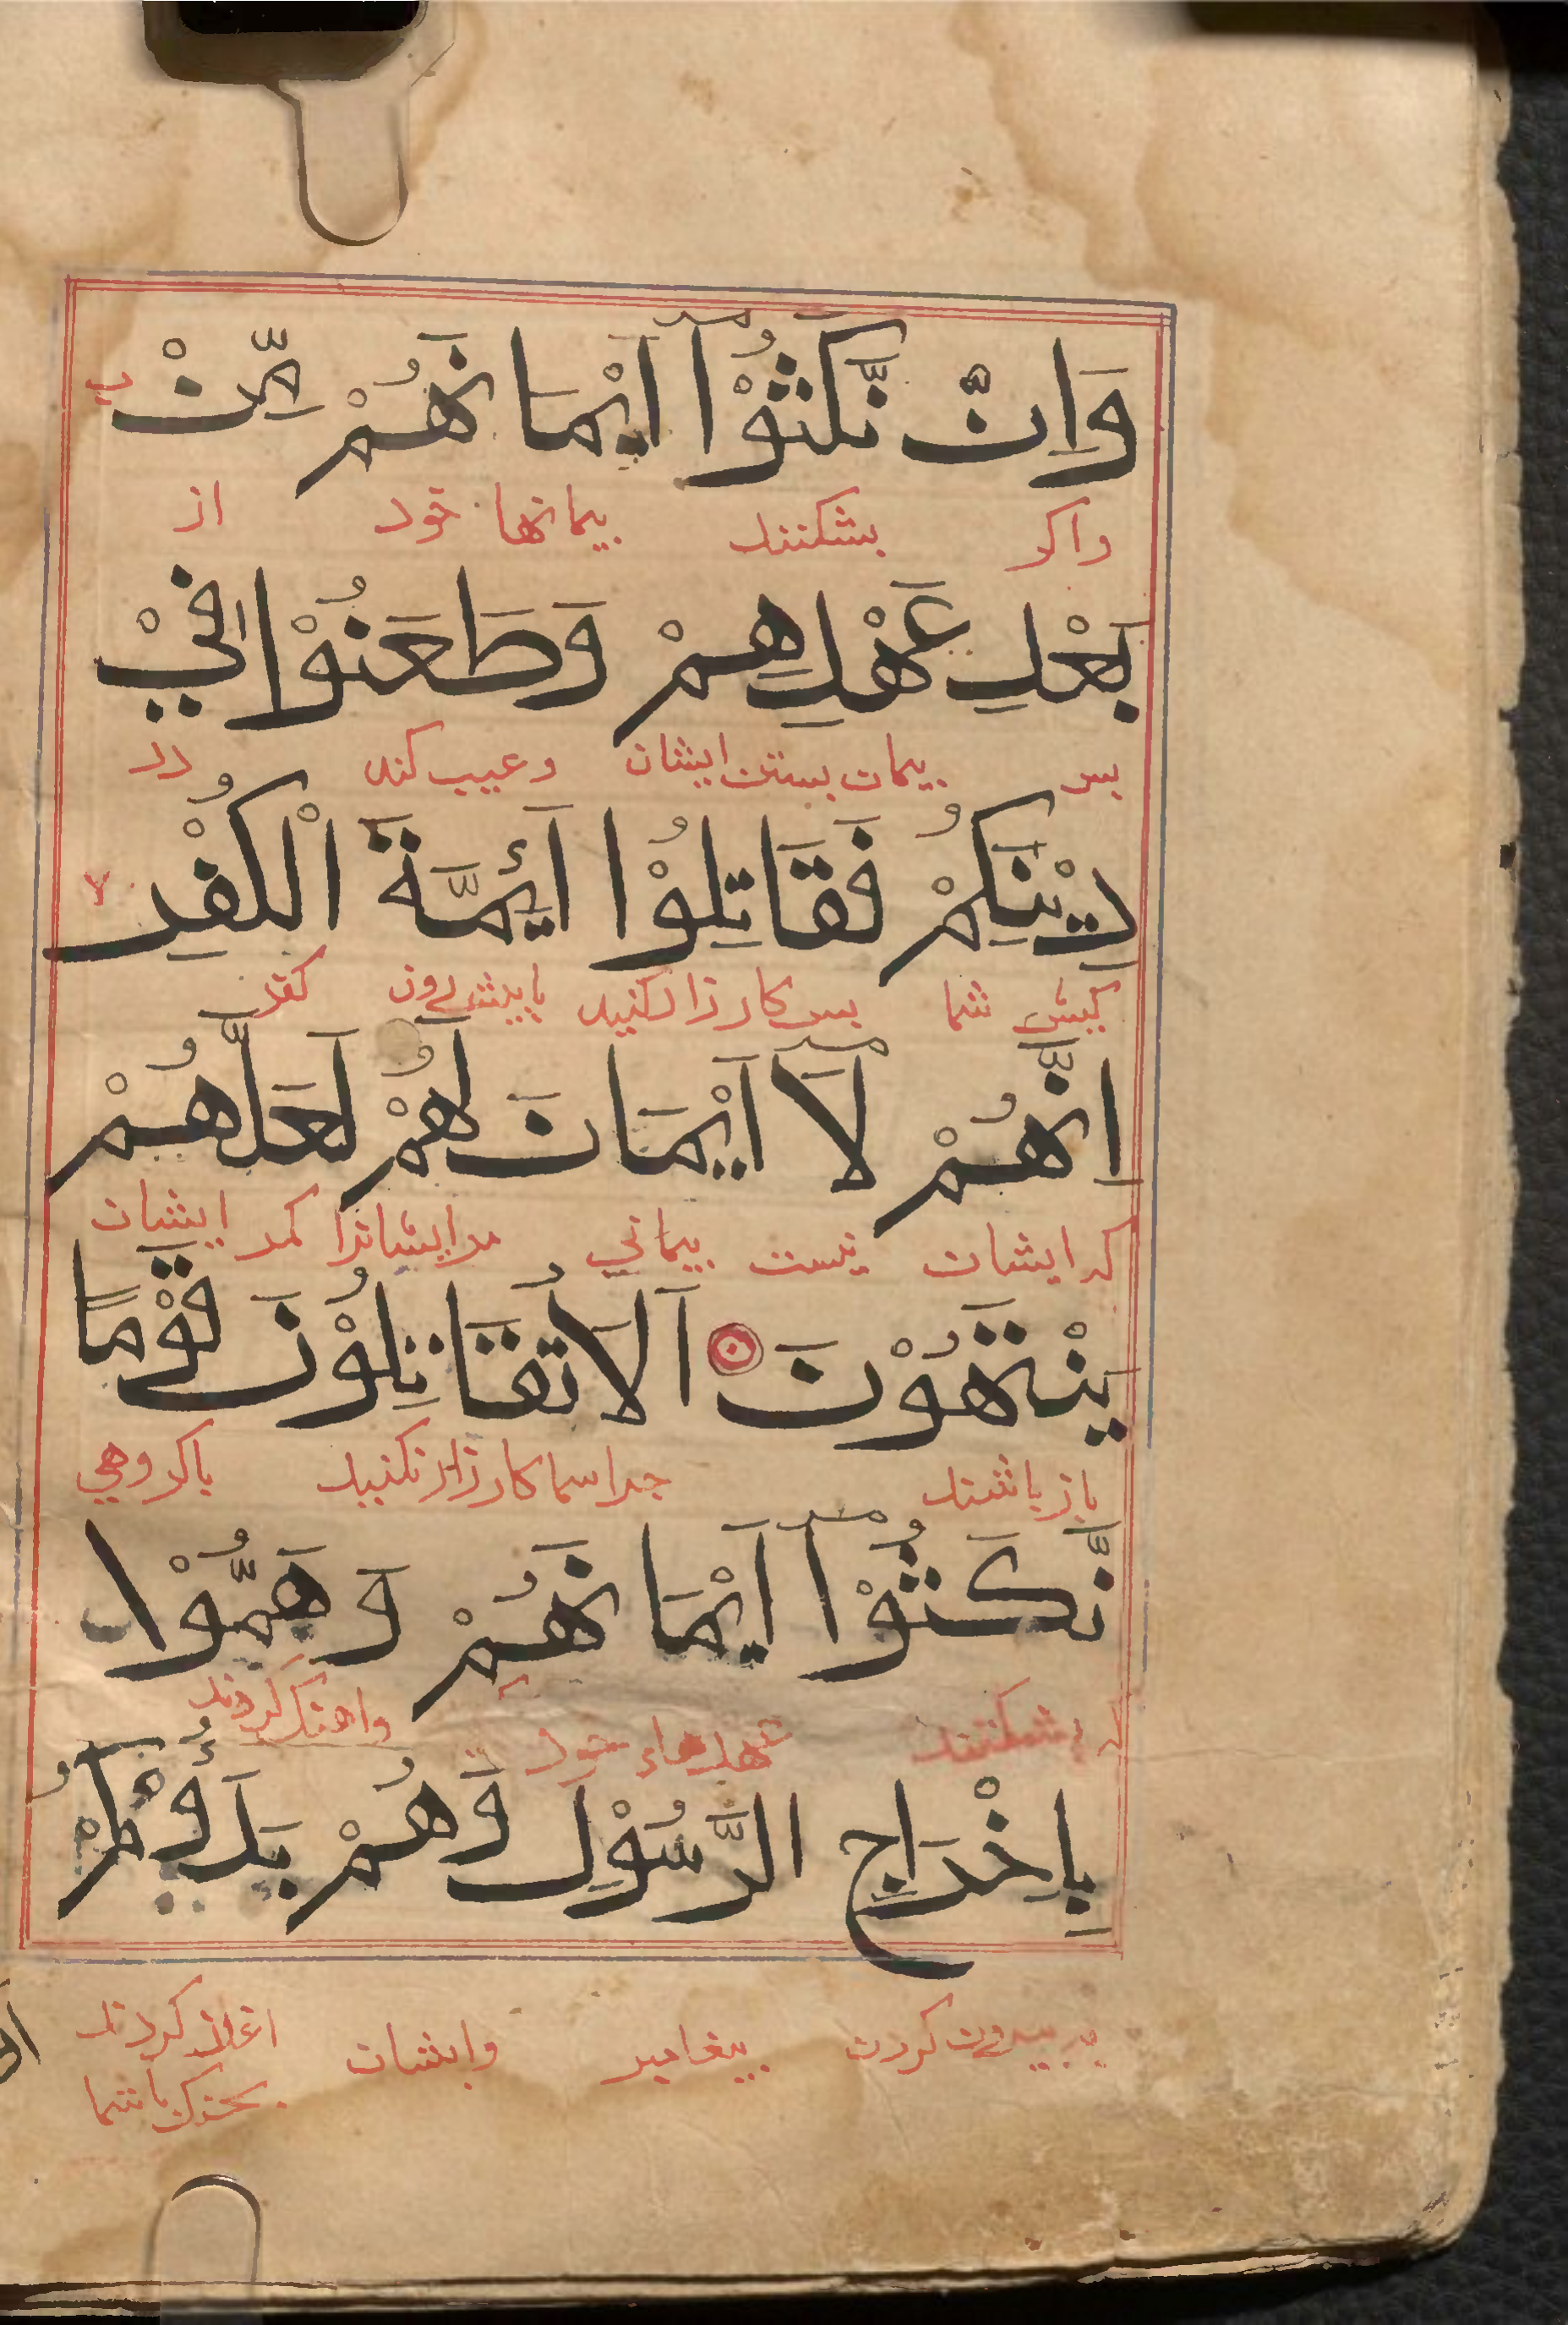 وَاِنْ نَّكَثُوْۤا اَيْمَانَهُمْ مِّنْۢ
واكر بشكنند بيمانها خود از
بَعْدِ عَهْدِهِمْ وَطَعَنُوْا فِيْ
بس بيمان بستن ايشان وعيب كند در
دِيْنِكُمْ فَقَاتِلُوْا اَئِمَّةَ الْكُفْرِ لا
كيش شما بس كارزار كنيد با پيشروان كفر
اِنَّهُمْ لَاۤ اَيْمَانَ لَهُمْ لَعَلَّهُمْ
كه ايشان نيست بيماني مر ايشانرا مكر ايشان
يَنْتَهُوْنَ اَلَا تُقَاتِلُوْنَ قَوْمًا
باز باشند جرا شما كارزار نكنيد باكروهي
نَّكَثُوْۤا اَيْمَانَهُمْ وَهَمُّوْا
كه بشكنند عهدهاء خود واهنك كردند
بِاِخْرَاجِ الرَّسُوْلِ وَهُمْ بَدَءُوْكُمْ
بر بيرون كردن بيغامبر وايشان اغاز كردند
بجنك باشما